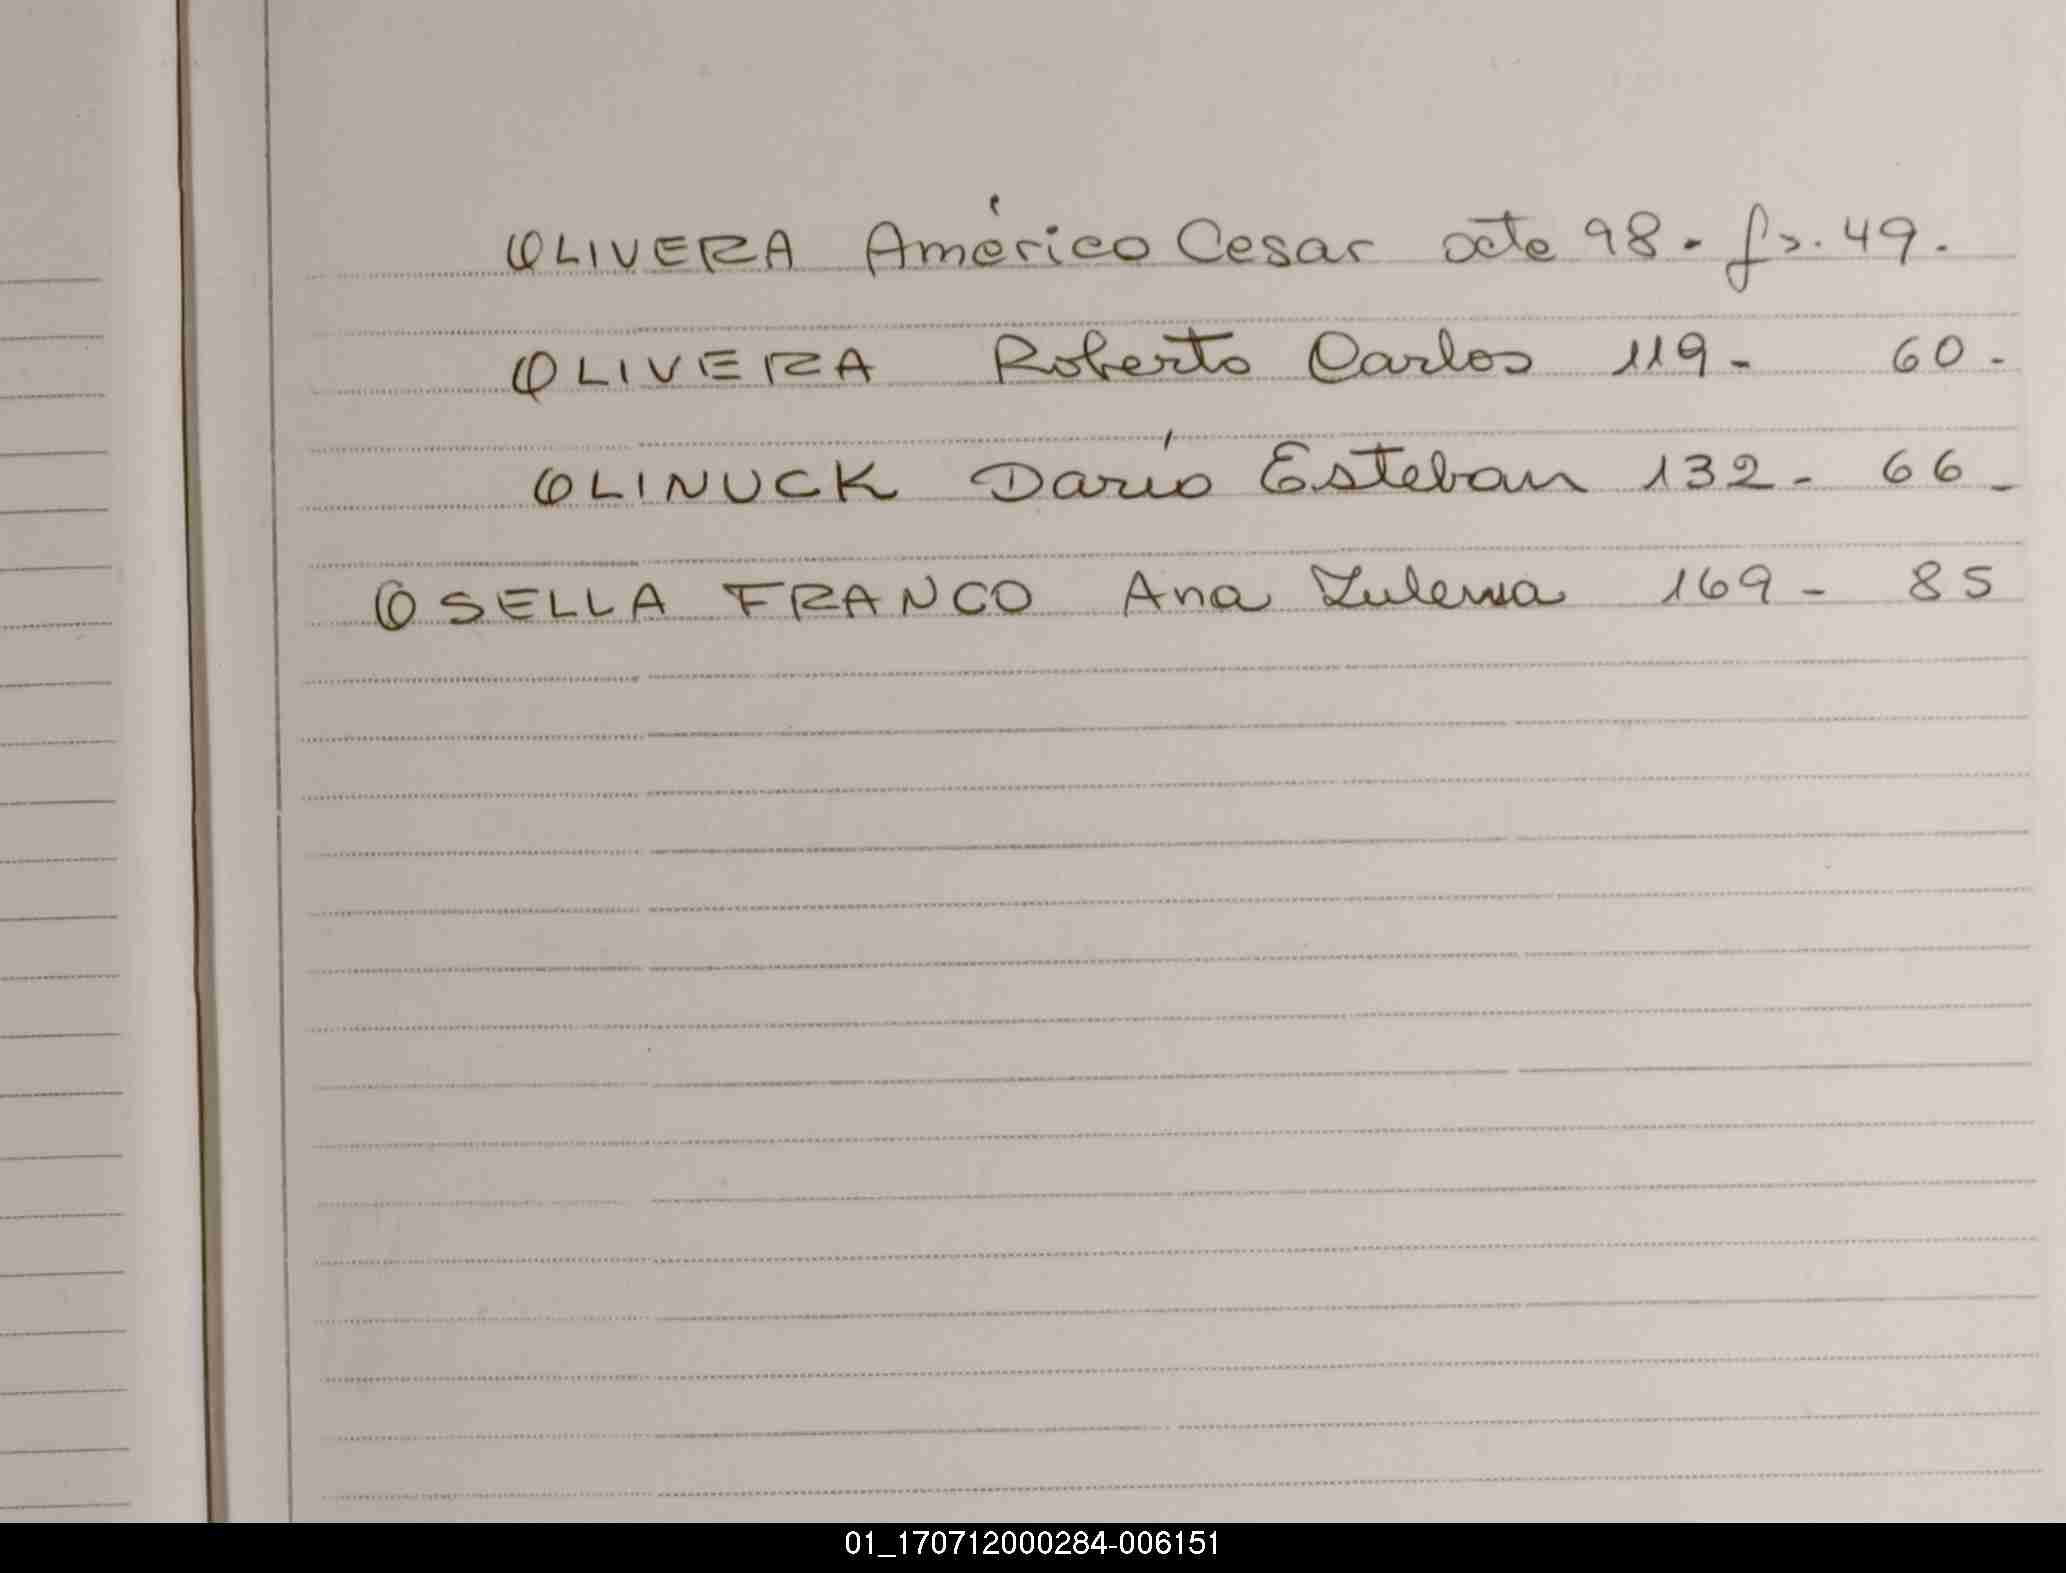 OLIVERA Américo Cesar acta 98. fs. 49.
OLIVERA Roberto Carlos 119- 60-
OLINUCK Darío Esteban 132- 66-
OSELLA FRANCO Ana Zulema 169- 85
01_170712000284-006151